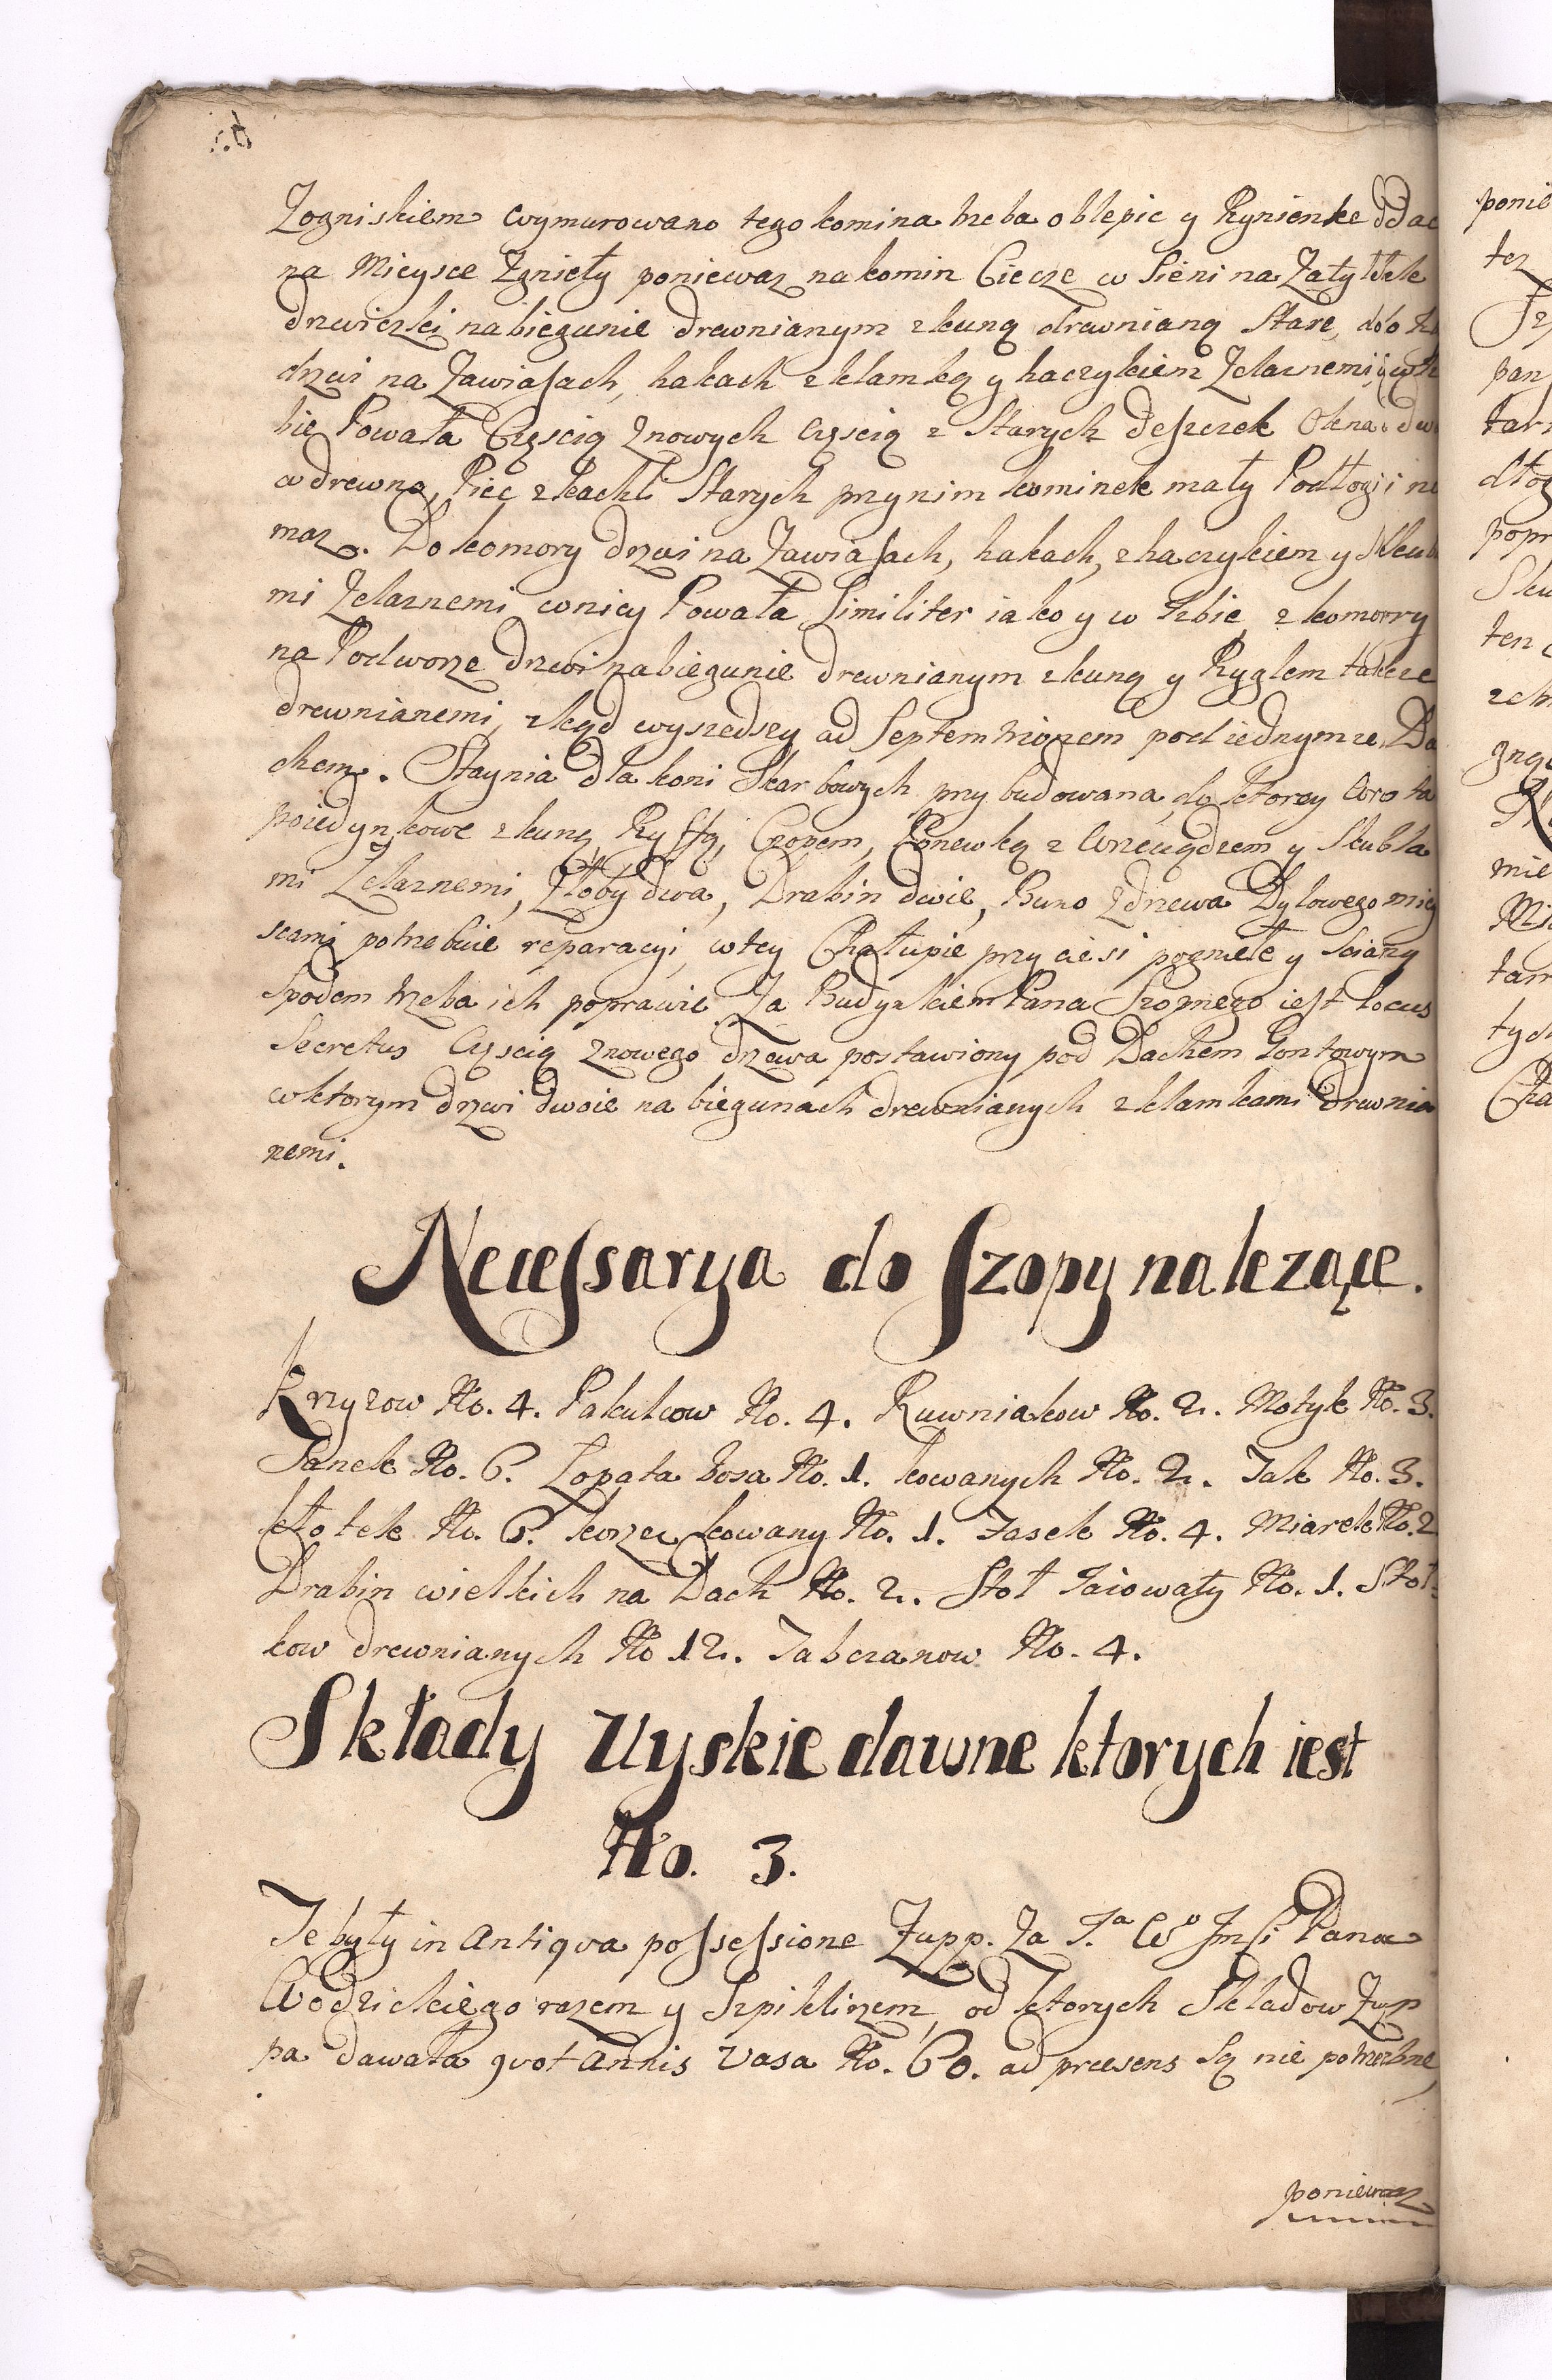 Zogniskiem wymurowano tego komina trzeba oblepic y Rynienke ddac
na Mieysce Zgnieły poniewaz na komin Ciecze w Sieni na Zatyłek
drzwiczki na biegunie drewnianym z kuną drewnianą Stare, do
drzwi na Zawiaſach, hakach z klamką y haczykiem Zelaznemi,
bie Powała Częscią znowych częscią z Starych deſzczek Okna
w drewno, Piec z kachli Starych przy nim kominek mały Podłogi
masz. Do komory drzwi na Zawiaſach, hakach, z haczykiem y
mi Zelaznemi, w niey Powała Similiter iako y w Izbie, z komorry
na Podworze drzwi na biegunie drewnianym z kuną y Ryglem takze
drewnianemi, zkąd wyszedszy ad Septemtrionem pod iednymze Da
chem. Staynia dla koni Skarbowych przybudowana, do ktorey wrota
poiedynkowe z kuną, Ryffą, Czopem, Panewką z Wrzeciądzem y Skubla
mi Zelaznemi, Złoby dwa, Drabin dwie, Buno z drzewa Dylowego miey
scami potrzebuie reparacyi, w tey Chałupie przyciesi pogniełe y sciany
Spodem trzeba ich poprawic. Za Budynkiem Pana Szopnego ieſt Locus
Secretus Częscią znowego drzewa postawiony pod Dachem Gontowym
w ktorym drzwi dwoie na biegunach drewnianych z klamkami drewnia
nemi.
Neceſsarya do Szopy nalezące.
Krzyzow No. 4. Pakułkow No. 4. Ruwniakow No. 2. Motyk No. 3.
Panek No. 6. Łopata bosa No. 1. kowanych No. 2. Tak No. 3.
kłotek No. 6. korzec kowany No. 1. Jasek No. 4. Miarek No. 2
Drabin wielkich na Dach No. 2. Stoł Taiowaty No. 1. Stoł
kow drewnianych No 12. Tabczanow No. 4.
Składy Uyskie dawne ktorych iest
No. 3.
Te były in Antiqva poſseſsione Zupp. Za J.ᵃ W.ᵒ Jmſci Pana
Wodzickiego razem y Szpiklirzem, od ktorych Skladow Zup
pa dawała qvotannis Vasa No. 60. ad præsens Są nie potrzebne,
poniewaz
ponie
tez
pan
dłog
popr
ten
mie
tam
tych
Cha